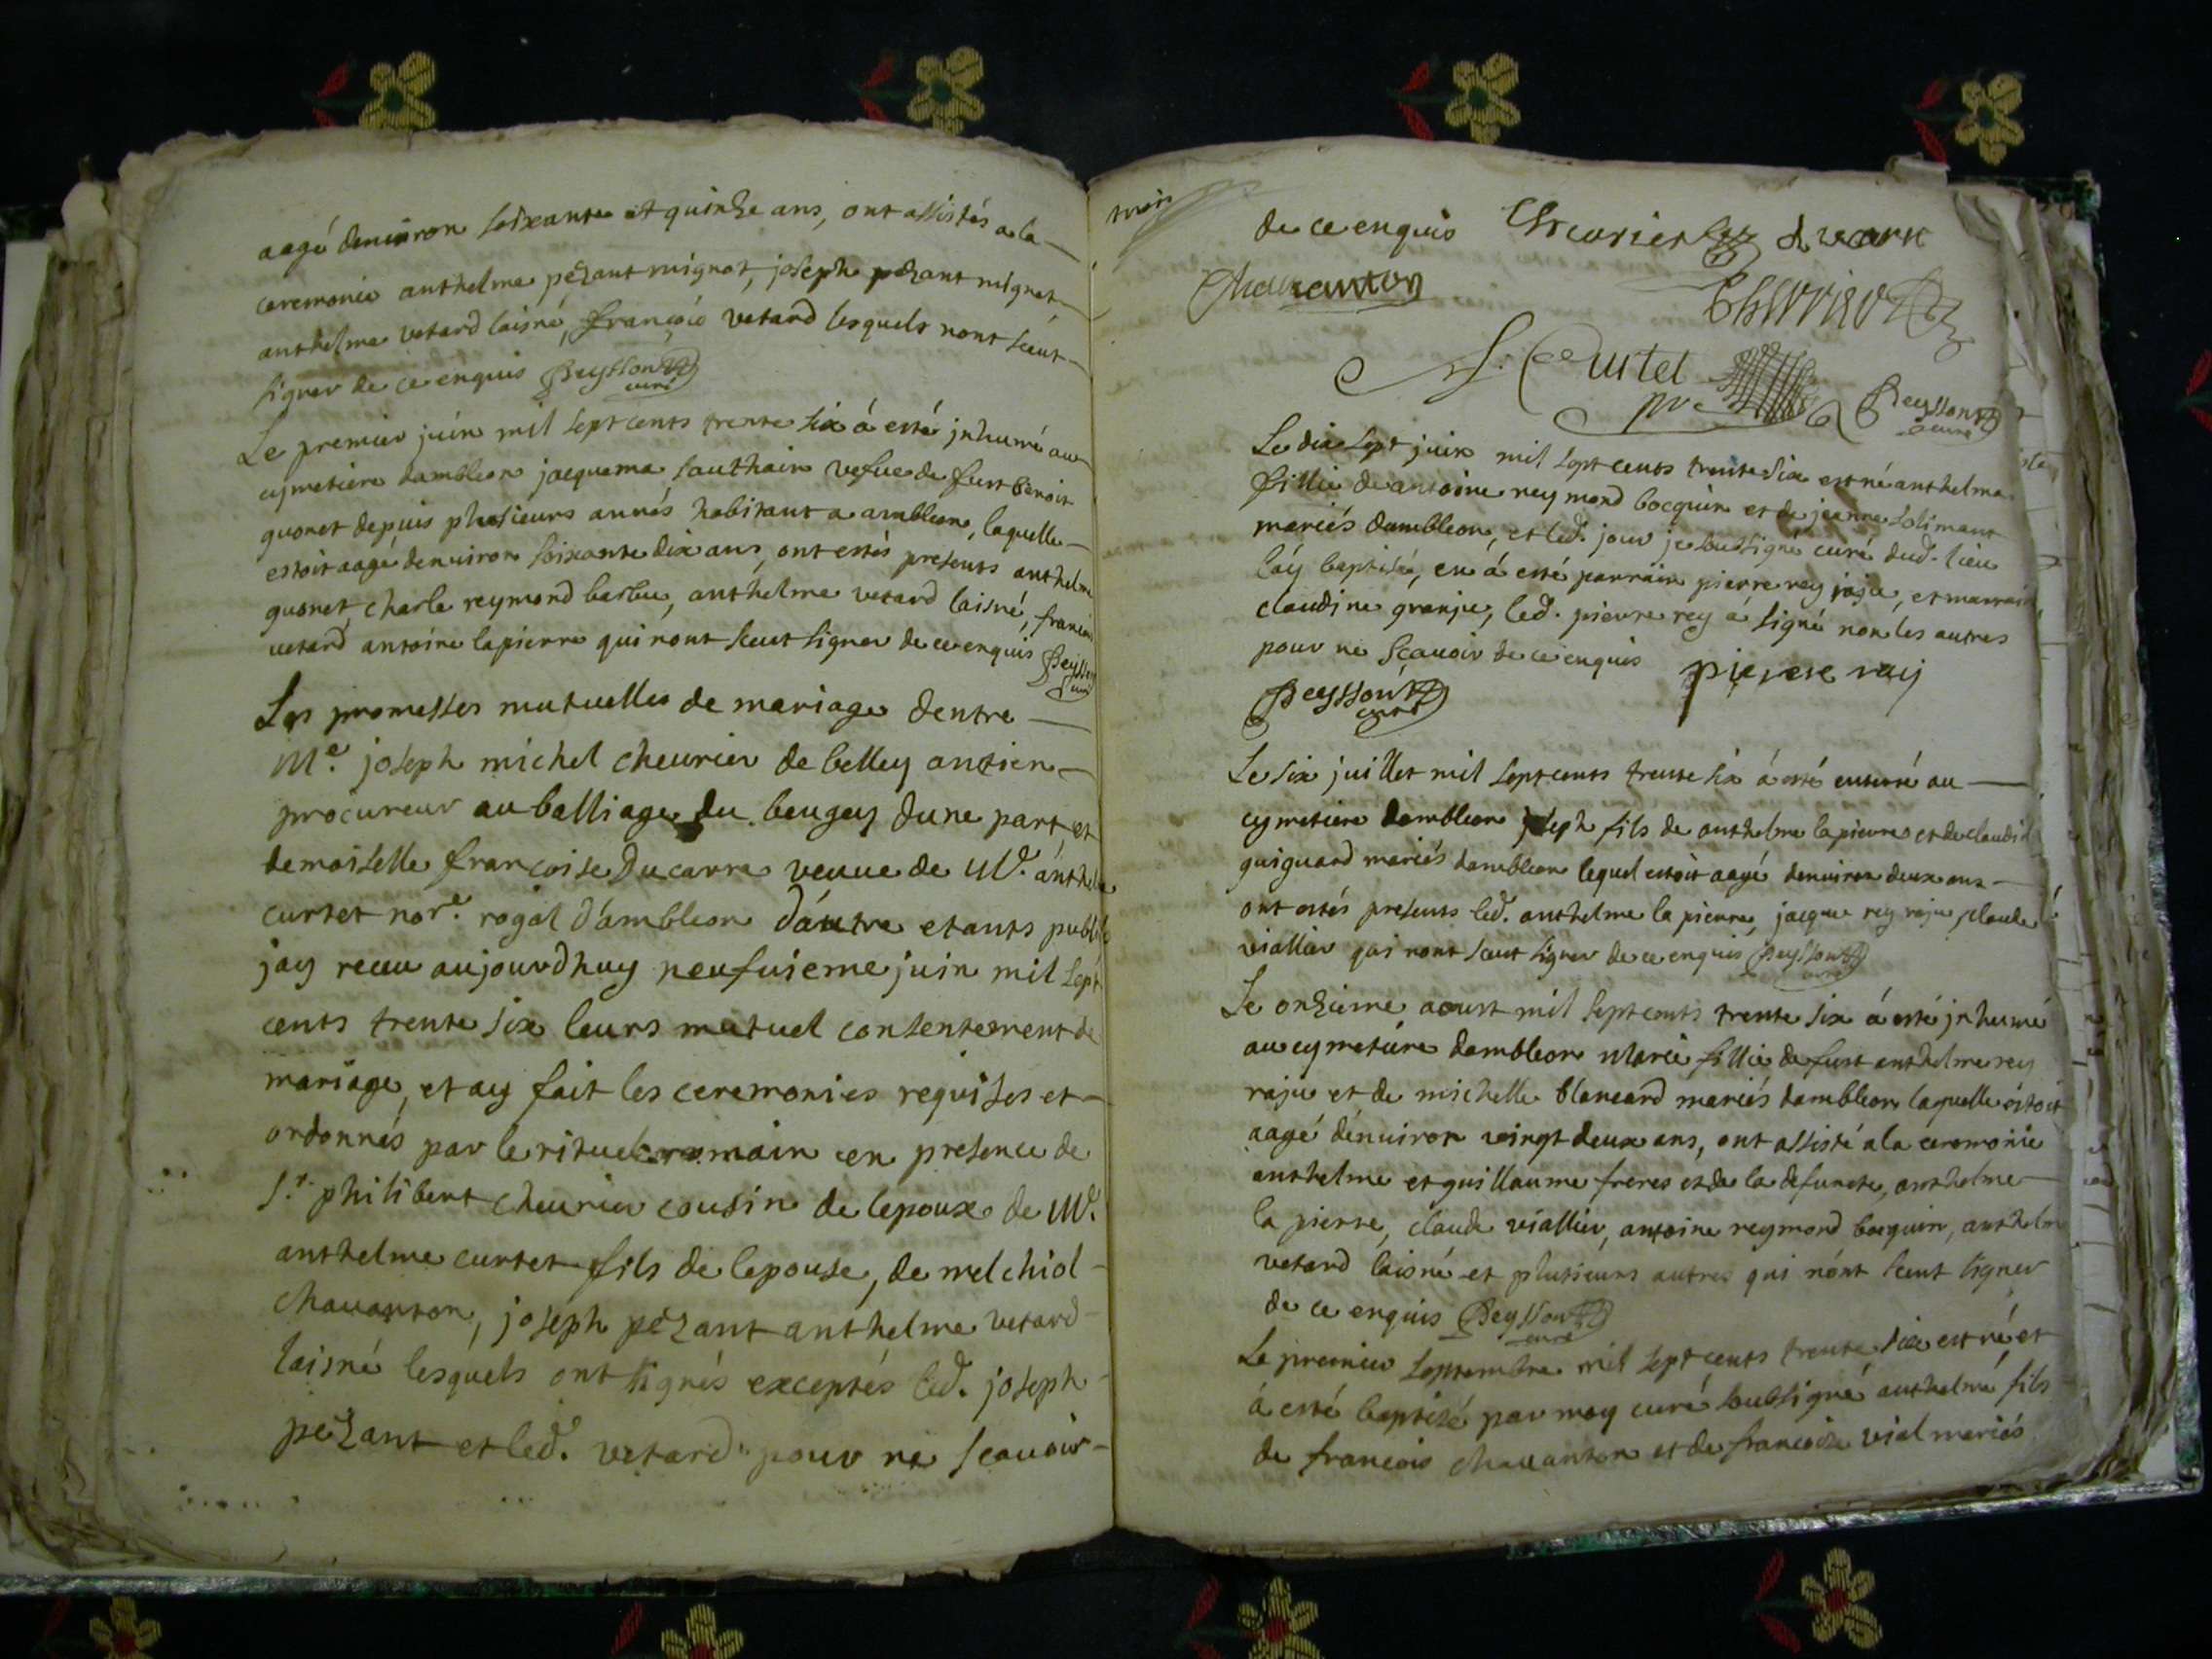 aagé denuiron soixante et quinze ans, ont assistés a la
ceremonie anthelme pézant mignot, joseph pézant mignot
anthelme vetard laisné, françois vetard lesquels nont sceut
signer de ce enquis Peysson curé
Le premier juin mil sept cents trente six á esté jnhumé au
cymetiere dambleon jacquema sauthain vefue de fust benoit
guonet depuis plusieurs annés habitant a ambleon, laquelle
estoit aagé denuiron soixante dix ans, ont estés presents anthelme
guonet, charle reymond barbu, anthelme vetard laisné, francois
vetard antoine lapierre qui nont sceut signer de ce enquis Peysson
curé
Les promesses mutuelles de mariage dentre
Me. joseph michel cheurier de belley antien
procureur au balliage du beugey dune part et
demoiselle francoise Ducarre veuue de Me. anthelme
curtet nore. roçal d'ambleon d'áutre etants publié
jay receu aujourdhuy neufuieme juin mil sept
cents trente six leurs mutuel consentement de
mariage, et ay fait les ceremonies requises et
ordonnés par le rituel romain en presence de
Sr. philibert cheurier cousin de lepoux de Me.
anthelme curtet fils de lepouse, de melchiol
chauanton, joseph pézant anthelme vetard
laisné lesquels ont signés exceptés led. joseph
pézant et led. vetard pour ne scauoir
de ce enquis Cheurier ducarre
Chauanton Cheurier
Curtet
Peysson curé
Le dix sept juin mil sept cents trente six est né anthelma
fillie de antoine reymond bocquin et de jeanne solimant
mariés dambleon, et led. jour je soussigné curé dud. lieu
láy baptisé, en á esté parrain pierre rey roju, et marraine
claudine granju, led. pierre rey á signé non les autres
pour ne scauoir de ce enquis pierere rey
Peysson curé
Le six juillet mil sept cents trente six á esté enterré au
cymetiere dambleon joseph fils de anthelme lapierre et de claudi
guiguard mariés dambleon lequel estoit aagé denuiron deux ans
ont estés presents led. anthelme la pierre, jacque rey roju, claude
viallier qui nont sceut signer de ce enquis Peysson curé
Le onzieme aoust mil sept cents trente six á esté jnhumé
au cymetiere dambleon Marie fillie de fust anthelme rey
roju et de michelle blancard mariés dambleon laquelle estoit
aagé dénuiron vingt deux ans, ont assisté a la ceremonie
anthelme et guillaume freres et de la defuncte, anthelme
la pierre, claude viallier, antoine reymond bocquin, anthelme
vetard laisné et plusieurs autres qui nónt sceut signer
de ce enquis Peysson curé
Le premier septembre mil sept cents trente six est né, et
á esté baptisé par moy curé soubsigné anthelme fils
de francois chauanton et de francoise vial mariés